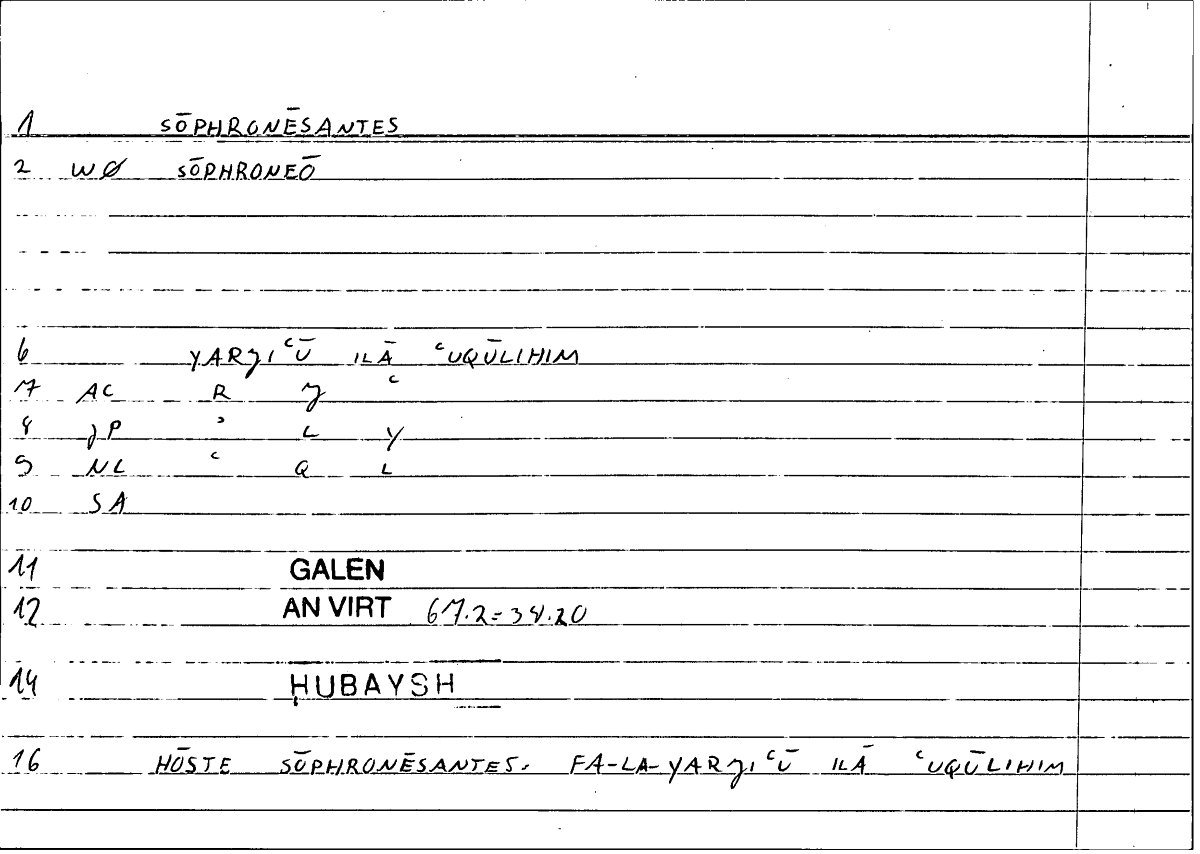 1 SŌPHRONĒSANTES
2 WØ SŌPHRONEŌ
6 YARJIʿŪ ILĀ ʿUQŪLIHIM
7 AC R J ʿ
8 JP ʾ L Y
9 NL ʿ Q L
10 SA
11 GALEN
12 AN VIRT 67.2=38.20
14 ḤUBAYSH
16 HŌSTE SŌPHRONĒSANTES. FA-LA-YARJIʿŪ ILĀ ʿUQŪLIHIM